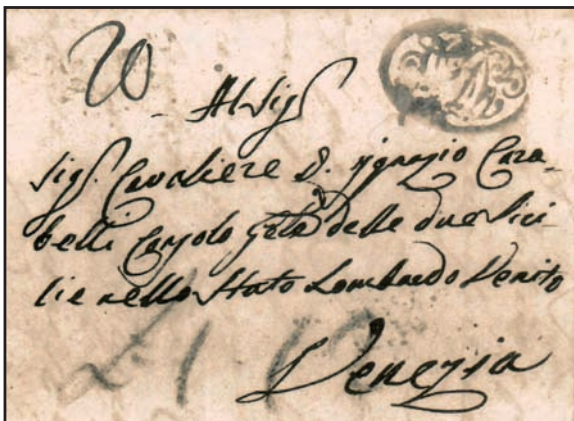 20
Al Sig
Sig. Cavaliere D. Ignazio Cara-
belli Consolo Gele delle due Sici
lie nello Stato Lombardo Veneto
Venezia